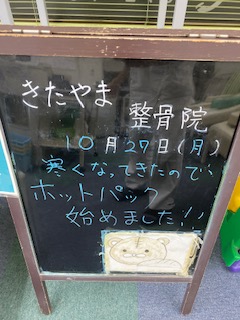 きたやま
整骨院
10月27日(月)
寒くなってきたので、
ホットパック
始めました!!